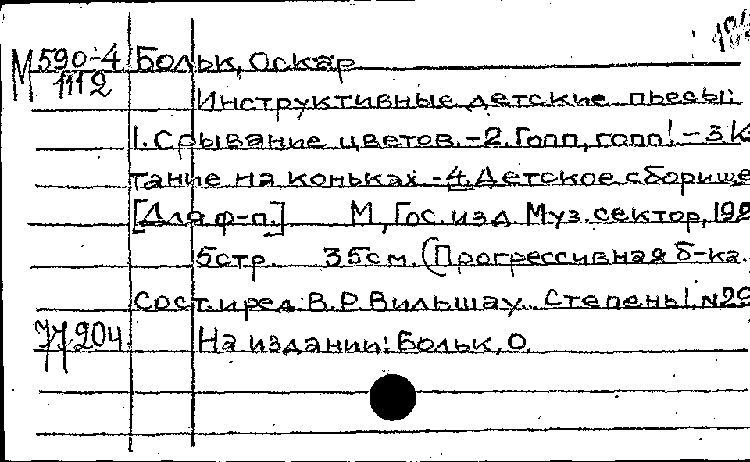 М 590-4 Больк, Оскар
1112
Инструктивные детские пьесы:
1. Срывание цветов. -2. Гопп, гопп! - 3 К
тание на коньках -4. Детское сборище
[Для ф-п.] М, Гос. изд Муз. сектор, 192
5стр. 35см. (Прогрессивная б-ка.
Сост. и ред. В. Р. Вильшау. Степень I. №
77204 На издании: Больк, О.